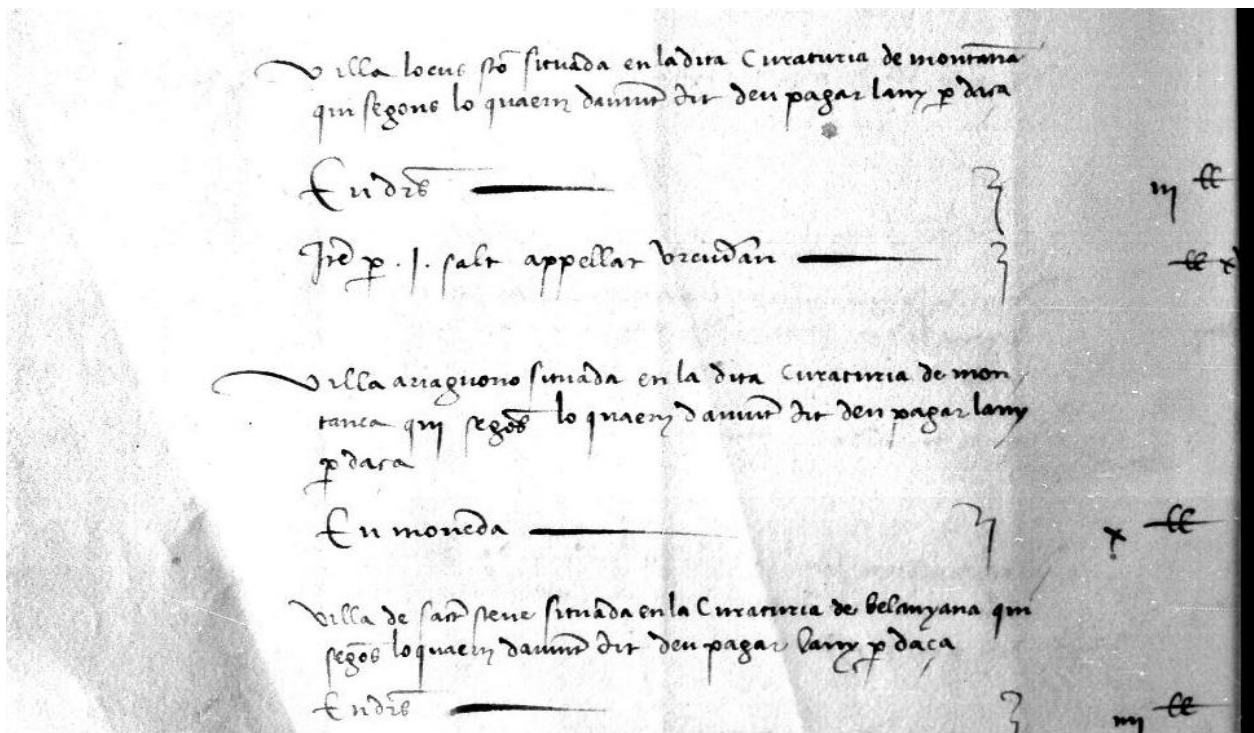 Villa locus sto situada en la dita Curaturia de montana
qui segons lo quaern davunt dit deu pagar lany p daça
En drs iij ll
Ite p .I. salt appellat ll x
Villa situada en la dita Curaturia de mon
tanea qui segos lo quaern davunt dit deu pagar lany
p daça
En moneda x ll
Villa de sact steve situada en la Curaturia de belanyana qui
segos lo quaern davunt dit deu pagar lany p daça
En drs iiij ll